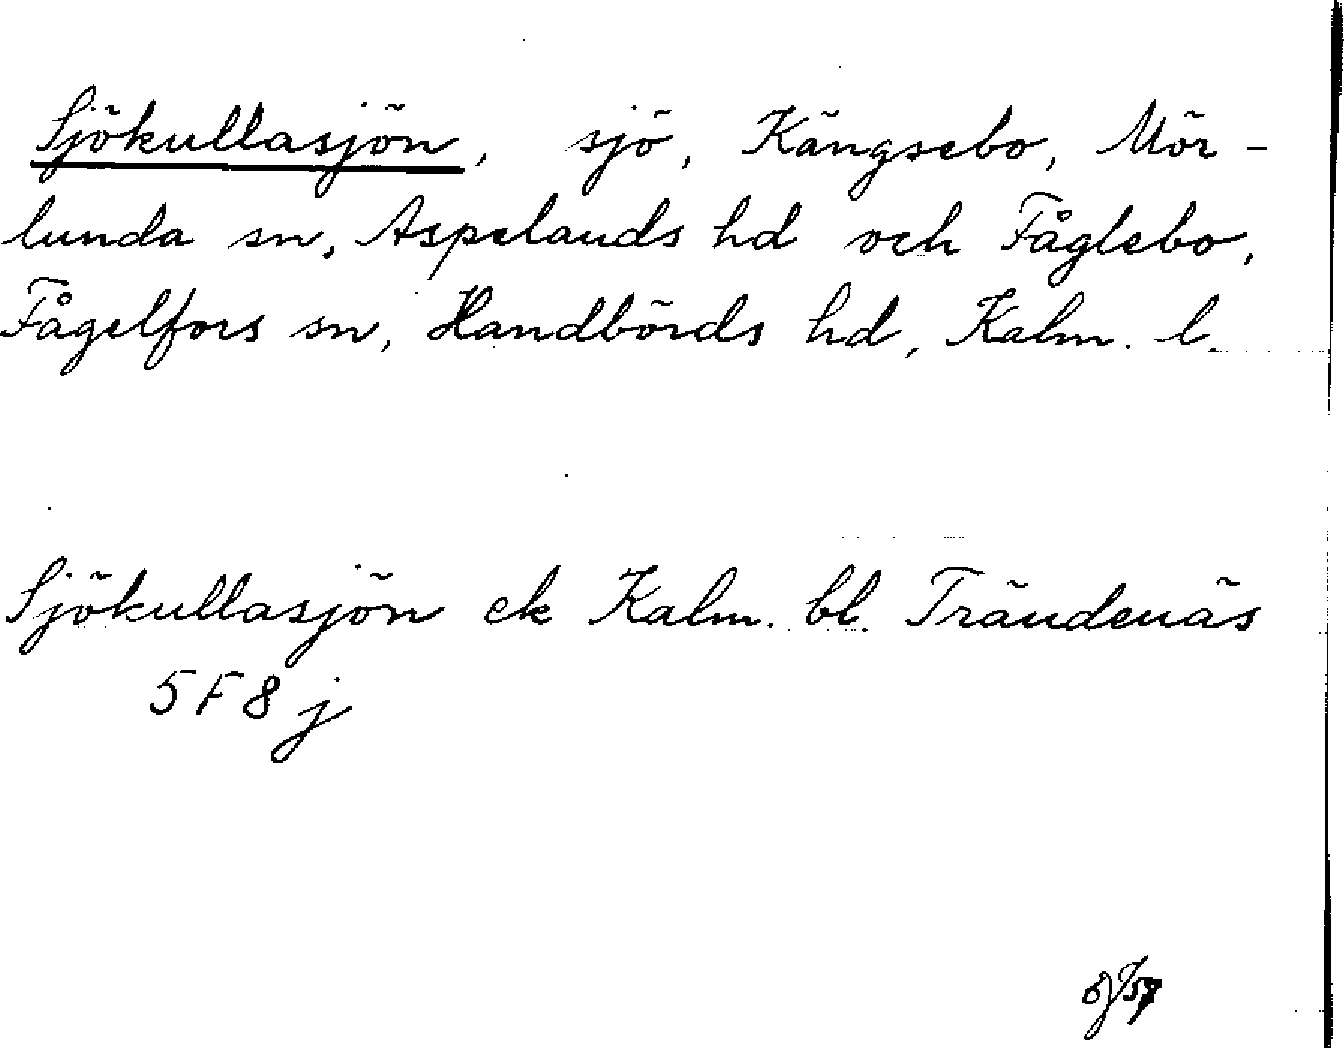 Sjökullasjön, sjö, Kängsebo, Mör-
lunda sn, Aspelands hd och Fåglebo,
Fågelfors sn, Handbörds hd, Kalm. l.
Sjökullasjön ek Kalm. bl. Trändenäs
5F8j